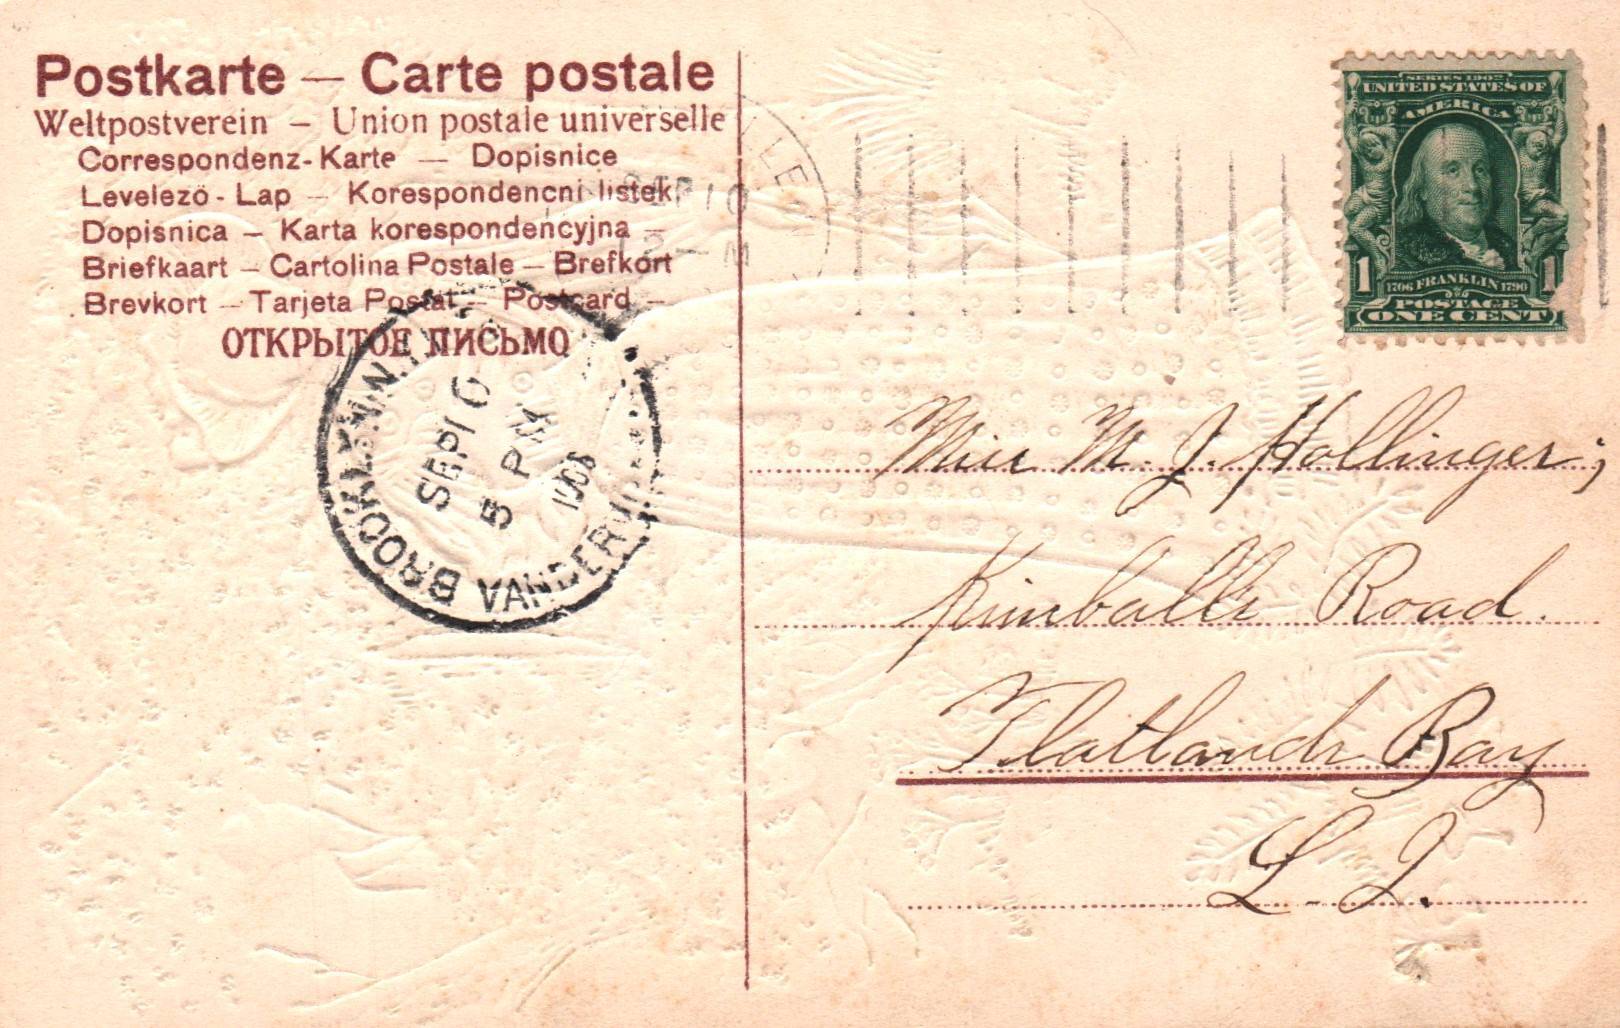 Postkarte — Carte postale
Weltpostverein — Union postale universelle
Correspondenz-Karte — Dopisnice
Levelező-Lap — Korespondencni listek
Dopisnica — Karta korespondencyjna —
Briefkaart — Cartolina Postale — Brefkort
Brevkort — Tarjeta Postal — Postcard —
ОТКРЫТОЕ ПИСЬМО
SEP 10
12 — M
BROOKLYN N.Y.
SEP 10
5 PM
SERIES 1902
UNITED STATES OF
AMERICA
1 1706 FRANKLIN 1790 1
POSTAGE
ONE CENT
Miss M. J. Hollinger;
Kimballs Road.
Flatlands Bay
L. I.